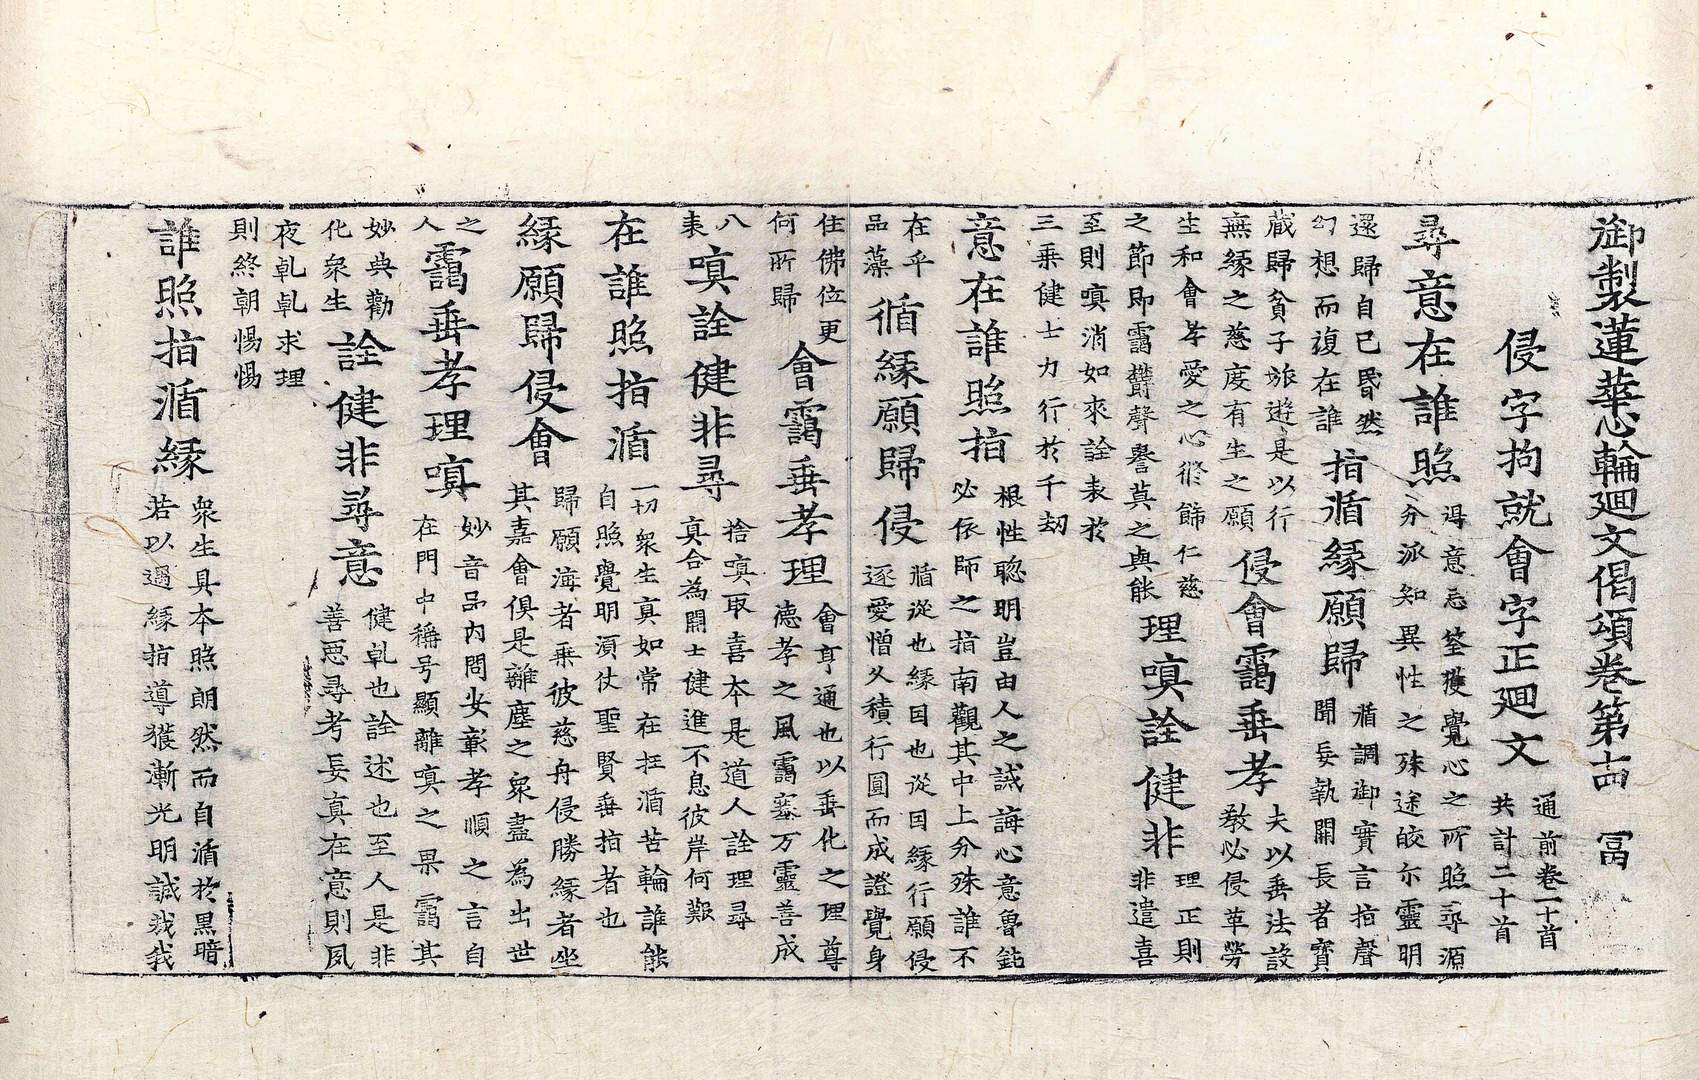 御製蓮華心輪廻文偈頌卷第十四 冨
侵字拘就會字正廻文
通前卷一十首
共計二十首
尋意在誰照
得意忘筌獲覺心之所照尋源
分派知異性之殊途皎尒靈明
還歸自己昬然
幻想而復在誰
指循緣願歸
循調御實言指聲
聞妄執開長者寳
蔵歸貧子旅遊是以行
無緣之慈度有生之願
侵會靄垂孝
夫以垂法設
教必侵革勞
生和會孝愛之心脩飾仁慈
之節即靄欝聲譽莫之與能
理嗔詮健非
理正則
非遣喜
至則嗔消如來詮表於
三乗健士力行於千刼
意在誰照指
根性聦明豈由人之誡誨心意魯鈍
必依師之指南觀其中上分殊誰不
在乎
品藻
循緣願歸侵
循從也緣因也從因緣行願侵
逐愛憎久積行圓而成證覺身
住佛位更
何所歸
會靄垂孝理
會亨通也以垂化之理尊
德孝之風靄塞万靈善成
八
表
嗔詮健非尋
捨嗔取喜本是道人詮理尋
真合為開士健進不息彼岸何艱
在誰照指循
一切衆生真如常在枉循苦輪誰能
自照覺明湏仗聖賢垂指者也
緣願歸侵會
歸願海者乗彼慈舟侵勝緣者坐
其嘉會俱是離塵之衆盡為出世
之
人
靄垂孝理嗔
妙音品内問安彰孝順之言自
在門中稱号顯離嗔之果靄其
妙典勸
化衆生
詮健非尋意
健乹也詮述也至人是非
善惡尋考妄真在意則夙
夜乹乹求理
則終朝惕惕
誰照指循緣
衆生具本照朗然而自循於黒暗
若以遇緣指導獲漸光明誠哉我